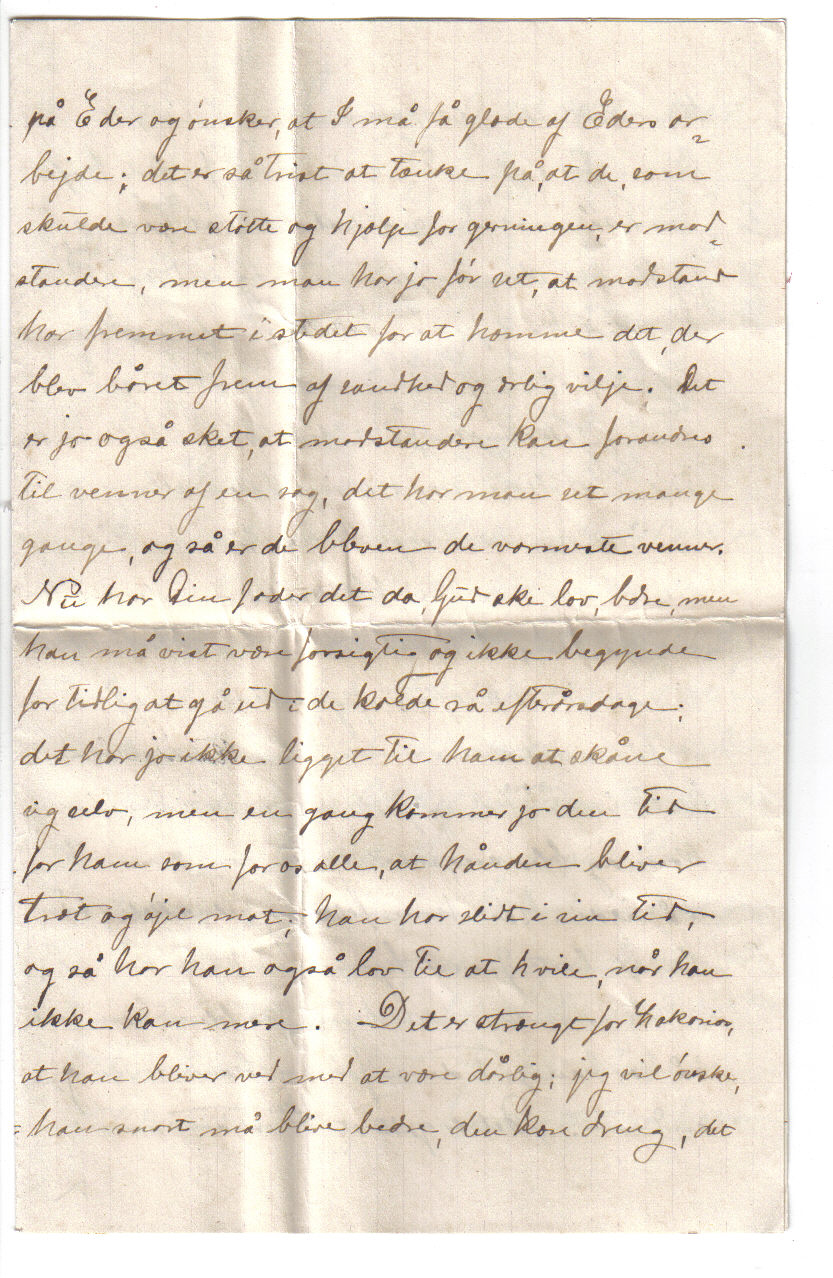 på Eder og ønsker, at I må få glæde af Eders ar-
bejde; det er så trist at tænke på, at de, som
skulde være støtte og hjælp for gerningen, er mod-
standere, men man har jo før set, at modstand
har fremmet i stedet for at hæmme det, der
blev båret frem af sandhed og ærlig vilje. Det
er jo også sket, at modstandere kan forandres
til venner af en sag, det har man set mange
gange, og så er de bleven de varmeste venner.
Nu har Din fader det da, Gud ske lov, bedre, men
han må vist være forsigtig og ikke begynde
for tidlig at gå ud i de kolde rå efterårsdage;
det har jo ikke ligget til ham at skåne
sig selv, men en gang kommer jo den tid
for ham som for os alle, at hånden bliver
træt og øjet mat; han har slidt i sin tid,
og så har han også lov til at hvile, når han
ikke kan mere. Det er strængt for Zakarias,
at han bliver ved med at være dårlig; jeg vil ønske,
han snart må blive bedre, den kære dreng, det